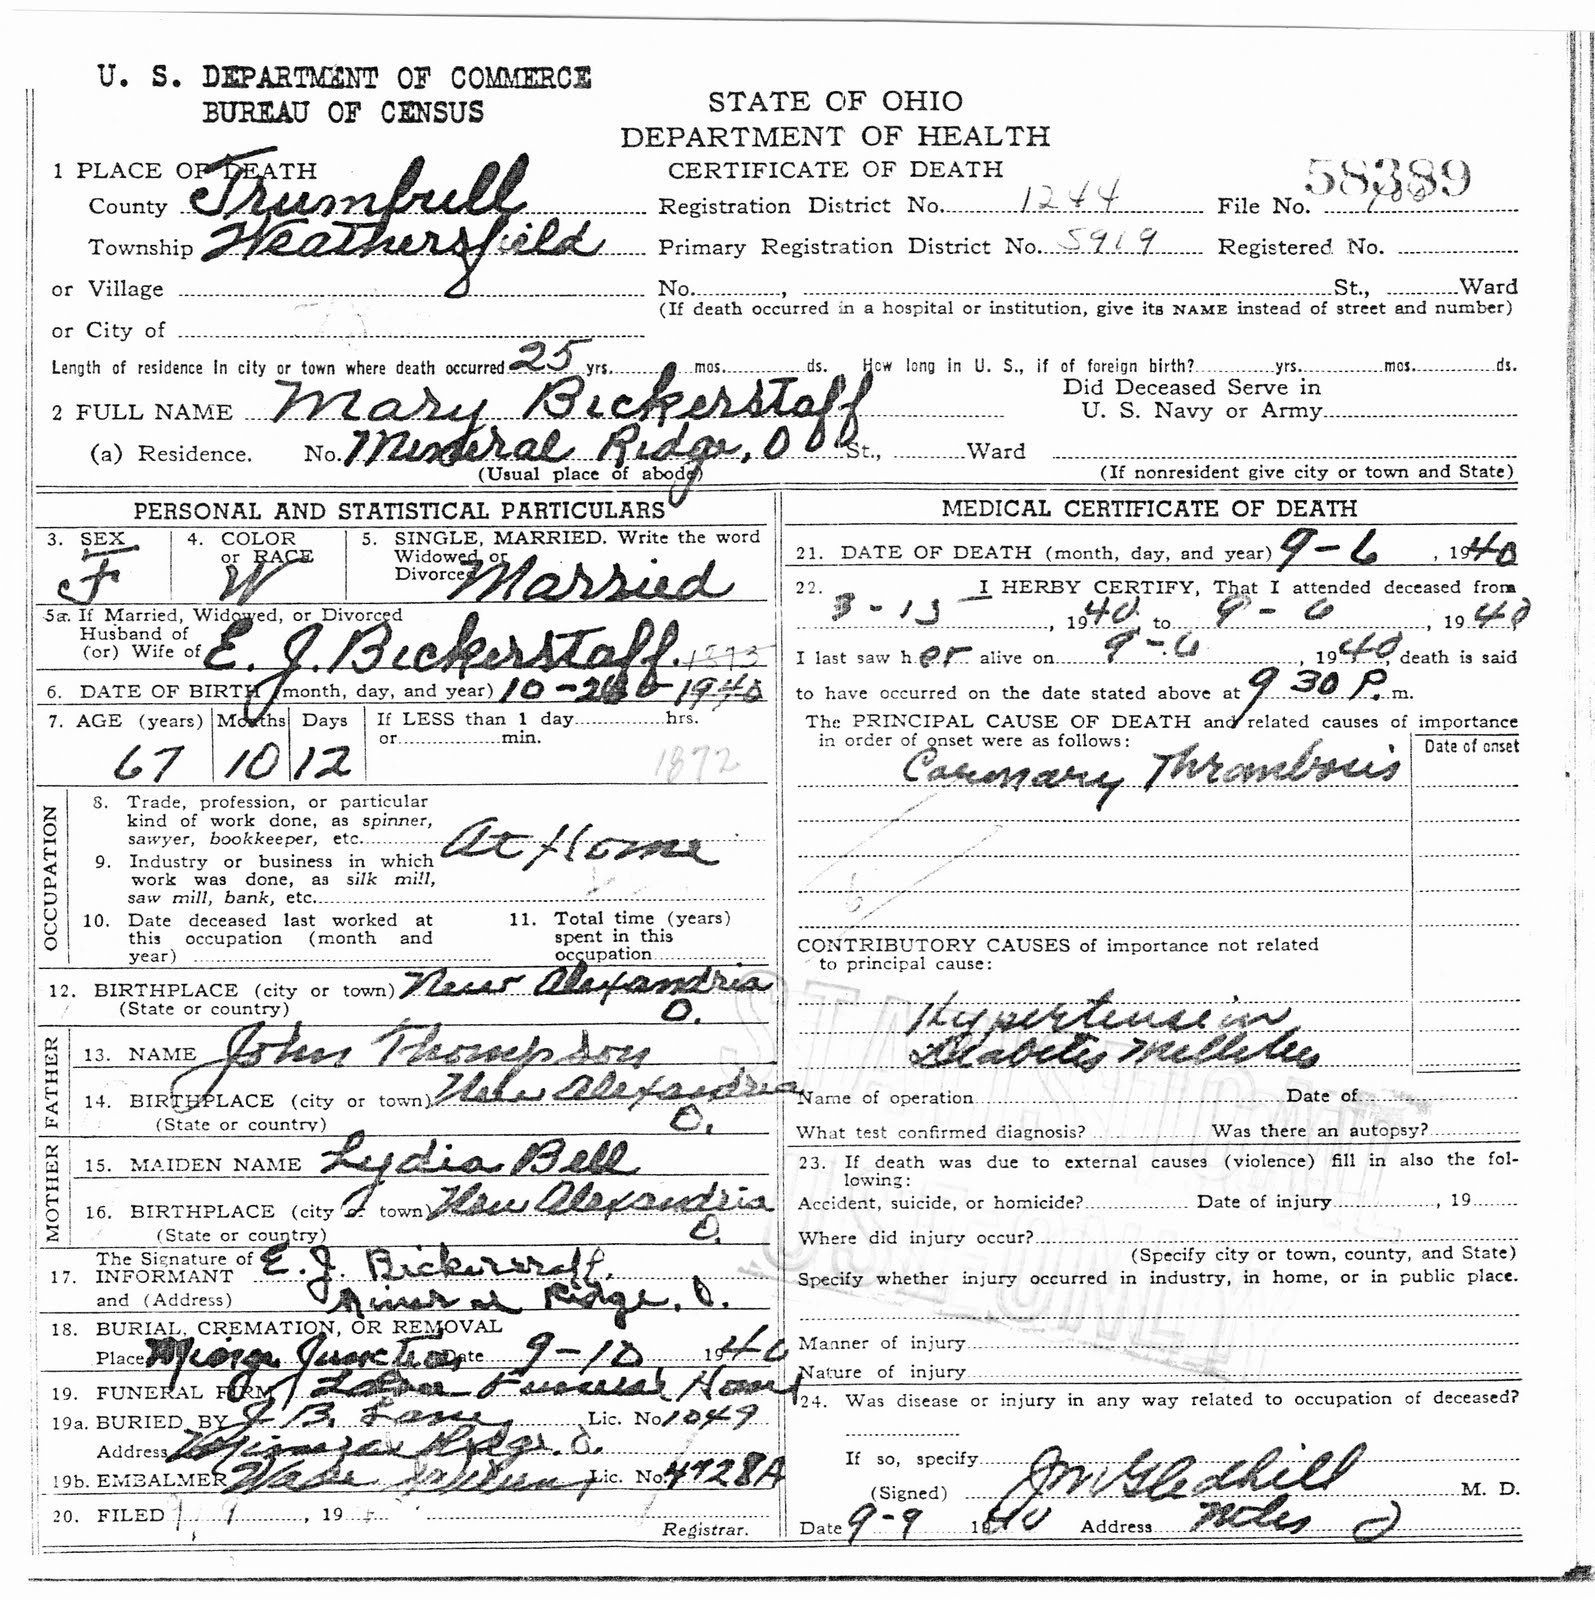 U. S. DEPARTMENT OF COMMERCE
BUREAU OF CENSUS
STATE OF OHIO
DEPARTMENT OF HEALTH
CERTIFICATE OF DEATH
58389
1 PLACE OF DEATH
County Trumbull Registration District No. 1244 File No.
Township Weathersfield Primary Registration District No. 5919 Registered No.
or Village No. , St., Ward
(If death occurred in a hospital or institution, give its NAME instead of street and number)
or City of
Length of residence in city or town where death occurred 25 yrs. mos. ds. How long in U. S., if of foreign birth? yrs. mos. ds.
2 FULL NAME Mary Bickerstaff Did Deceased Serve in U. S. Navy or Army
(a) Residence. No. Mineral Ridge, O St., Ward
(Usual place of abode) (If nonresident give city or town and State)
PERSONAL AND STATISTICAL PARTICULARS
3. SEX F 4. COLOR or RACE W 5. SINGLE, MARRIED. Write the word Widowed or Divorced Married
5a. If Married, Widowed, or Divorced
Husband of
(or) Wife of E. J. Bickerstaff. 1873
6. DATE OF BIRTH (month, day, and year) 10-26-1940
7. AGE (years) Months Days If LESS than 1 day hrs.
or min.
67 10 12 1872
OCCUPATION
8. Trade, profession, or particular
kind of work done, as spinner,
sawyer, bookkeeper, etc. At Home
9. Industry or business in which
work was done, as silk mill,
saw mill, bank, etc.
10. Date deceased last worked at
this occupation (month and
year)
11. Total time (years)
spent in this
occupation
12. BIRTHPLACE (city or town) New Alexandria
(State or country) O.
FATHER
13. NAME John Thompson
14. BIRTHPLACE (city or town) New Alexandria
(State or country) O.
MOTHER
15. MAIDEN NAME Lydia Bell
16. BIRTHPLACE (city or town) New Alexandria
(State or country) O.
The Signature of E. J. Bickerstaff.
17. INFORMANT
and (Address) Mineral Ridge, O.
18. BURIAL, CREMATION, OR REMOVAL
Place Mingo Junction Date 9-10 1940
19. FUNERAL FIRM Lane Funeral Home
19a. BURIED BY J. B. Lane Lic. No. 1049
Address Mineral Ridge, O.
19b. EMBALMER Wade Lic. No. 4728A
20. FILED , 19
Registrar.
MEDICAL CERTIFICATE OF DEATH
21. DATE OF DEATH (month, day, and year) 9-6, 1940
22. I HERBY CERTIFY, That I attended deceased from
3-15, 1940, to 9-6, 1940
I last saw her alive on 9-6, 1940, death is said
to have occurred on the date stated above at 9 30 P. m.
The PRINCIPAL CAUSE OF DEATH and related causes of importance
in order of onset were as follows: Date of onset
Coronary Thrombosis
CONTRIBUTORY CAUSES of importance not related
to principal cause:
Hypertension
Diabetes Mellitus
Name of operation Date of
What test confirmed diagnosis? Was there an autopsy?
23. If death was due to external causes (violence) fill in also the fol-
lowing:
Accident, suicide, or homicide? Date of injury , 19
Where did injury occur?
(Specify city or town, county, and State)
Specify whether injury occurred in industry, in home, or in public place.
Manner of injury
Nature of injury
24. Was disease or injury in any way related to occupation of deceased?
If so, specify
(Signed) J M Gledhill M. D.
Date 9-9 1940 Address Niles O
STATISTICAL
USE ONLY